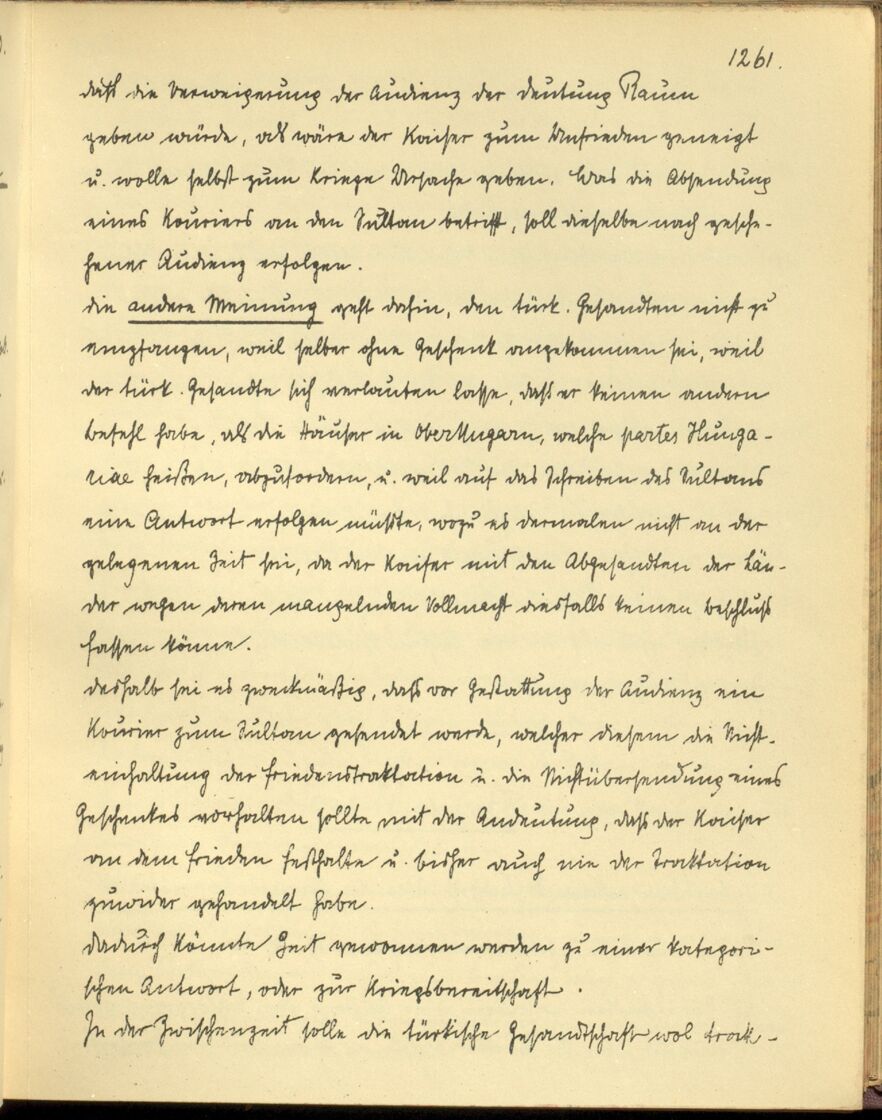 1261.
daß die Verweigerung der Audienz der Deutung Raum
geben würde, als wäre der Kaiser zum Unfrieden geneigt
u. wolle selbst zum Kriege Ursache geben. Was die Absendung
eines Kouriers an den Sultan betrifft, soll dieselbe nach gesche-
hener Audienz erfolgen.
Die andere Meinung geht dahin, den türk. Gesandten nicht zu
empfangen, weil selber ohne Geschenk angekommen sei, weil
der türk. Gesandte sich verlauten lasse, daß er keinen andern
Befehl habe, als die Häuser in OberUngarn, welche partes Hunga-
riae heißen, abzufordern, u. weil auf das Schreiben des Sultans
eine Antwort erfolgen müßte, wozu es dermalen nicht an der
gelegenen Zeit sei, da der Kaiser mit den Abgesandten der Län-
der wegen deren mangelnden Vollmacht diesfalls keinen Beschluß
fassen könne.
Deshalb sei es zweckmäßig, daß vor Gestattung der Audienz ein
Kourier zum Sultan gesendet werde, welcher diesem die Nicht-
einhaltung der Friedenstraktation u. die Nichtübersendung eines
Geschenkes vorhalten sollte mit der Andeutung, daß der Kaiser
an dem Frieden festhalte u. bisher auch nie der Traktation
zuwider gehandelt habe.
Dadurch könnte Zeit gewonnen werden zu einer kategori-
schen Antwort, oder zur Kriegsbereitschaft.
In der Zwischenzeit solle die türkische Gesandtschaft wol trak-